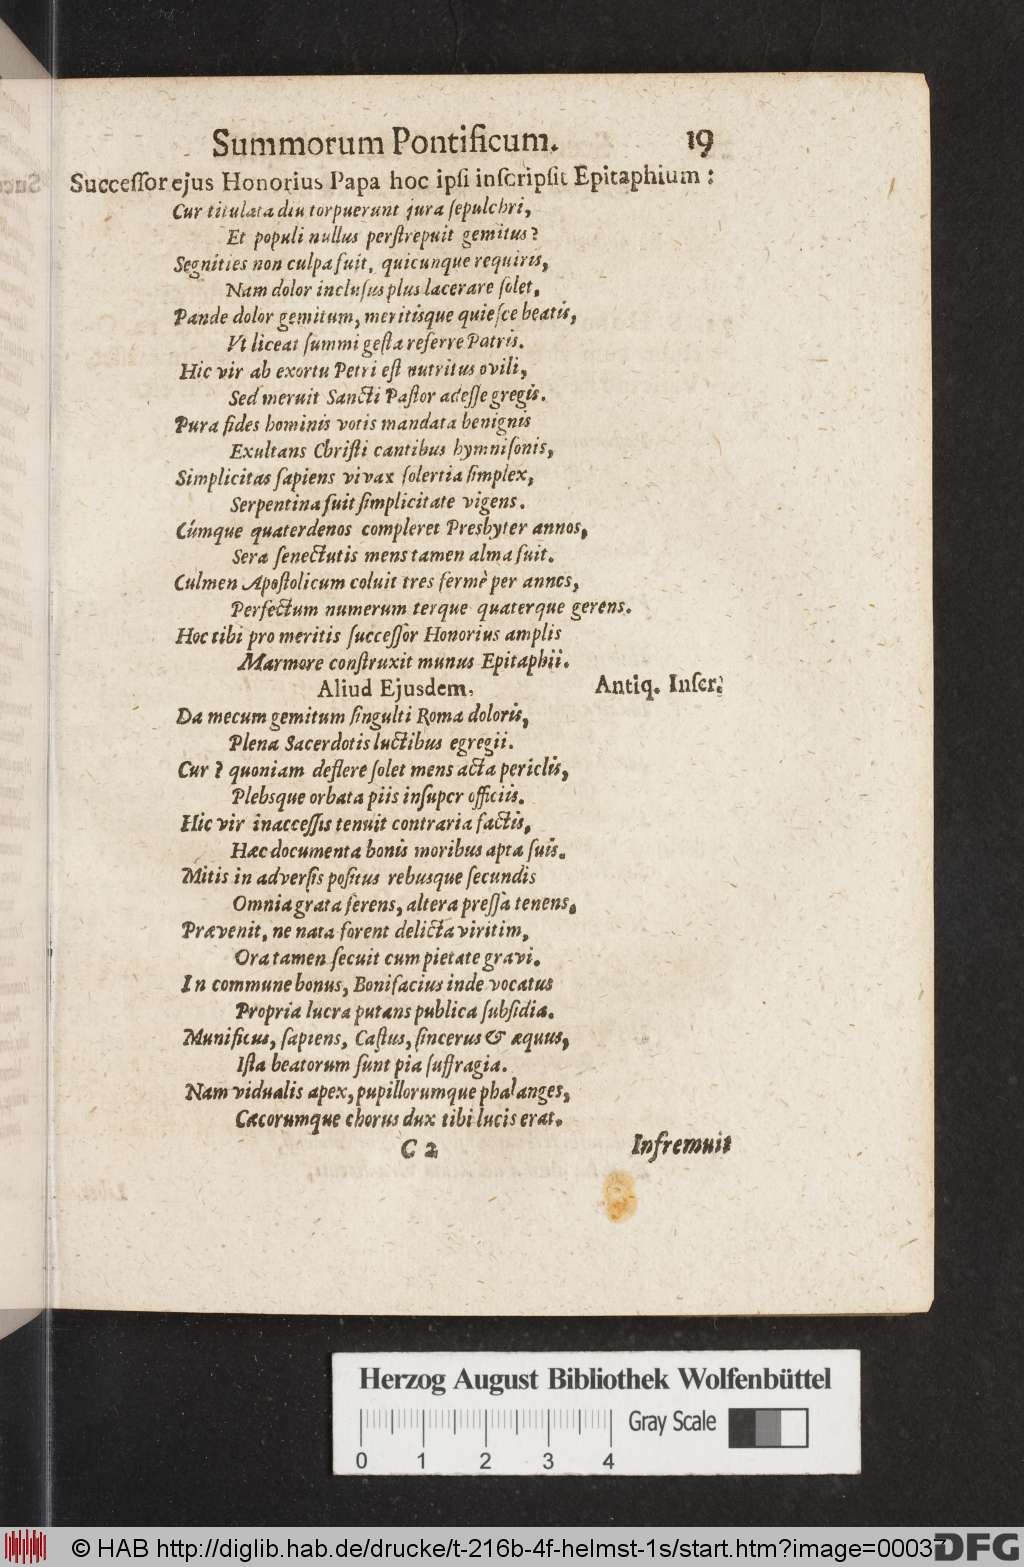 Summorum Pontificum. 19
Succeſſor ejus Honorius Papa hoc ipſi inſcripſit Epitaphium:
Cur titulata diu torpuerunt jura ſepulchri,
Et populi nullus perſtrepuit gemitus?
Segnities non culpa fuit, quicunque requiris,
Nam dolor incluſus plus lacerare ſolet,
Pande dolor gemitum, meritisque quieſce beatis,
Ut liceat ſummi geſta referre Patris.
Hic vir ab exortu Petri eſt nutritus ovili,
Sed meruit Sancti Paſtor adeſſe gregis.
Pura fides hominis votis mandata benignis
Exultans Chriſti cantibus hymniſonis,
Simplicitas ſapiens vivax ſolertia ſimplex,
Serpentina fuit ſimplicitate vigens.
Cúmque quaterdenos compleret Presbyter annos,
Sera ſenectutis mens tamen alma fuit.
Culmen Apoſtolicum coluit tres fermè per annos,
Perfectum numerum terque quaterque gerens.
Hoc tibi pro meritis ſucceſſor Honorius amplis
Marmore conſtruxit munus Epitaphii.
Aliud Ejusdem. Antiq. Inſcr.
Da mecum gemitum ſingulti Roma doloris,
Plena Sacerdotis luctibus egregii.
Cur? quoniam deflere ſolet mens acta periclis,
Plebsque orbata piis inſuper officiis.
Hic vir inacceſſis tenuit contraria factis,
Hæc documenta bonis moribus apta ſuis.
Mitis in adverſis poſitus rebusque ſecundis
Omnia grata ferens, altera preſſa tenens.
Prævenit, ne nata forent delicta viritim,
Ora tamen ſecuit cum pietate gravi.
In commune bonus, Bonifacius inde vocatus
Propria lucra putans publica ſubſidia.
Munificus, ſapiens, Caſtus, ſincerus & æquus,
Iſta beatorum ſunt pia ſuffragia.
Nam vidualis apex, pupillorumque phalanges,
Cæcorumque chorus dux tibi lucis erat.
C 2 Infremuit
Herzog August Bibliothek Wolfenbüttel
Gray Scale
0 1 2 3 4
© HAB http://diglib.hab.de/drucke/t-216b-4f-helmst-1s/start.htm?image=00037
DFG